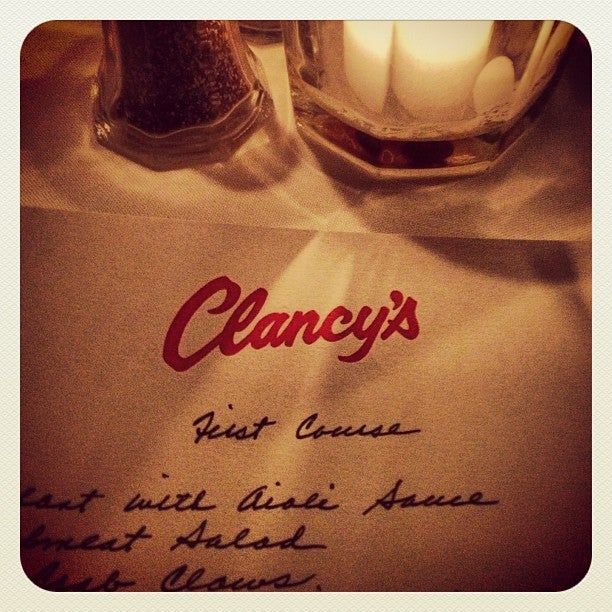 Clancy's
First Course
with Aioli Sauce
Salad
Crab Claws.